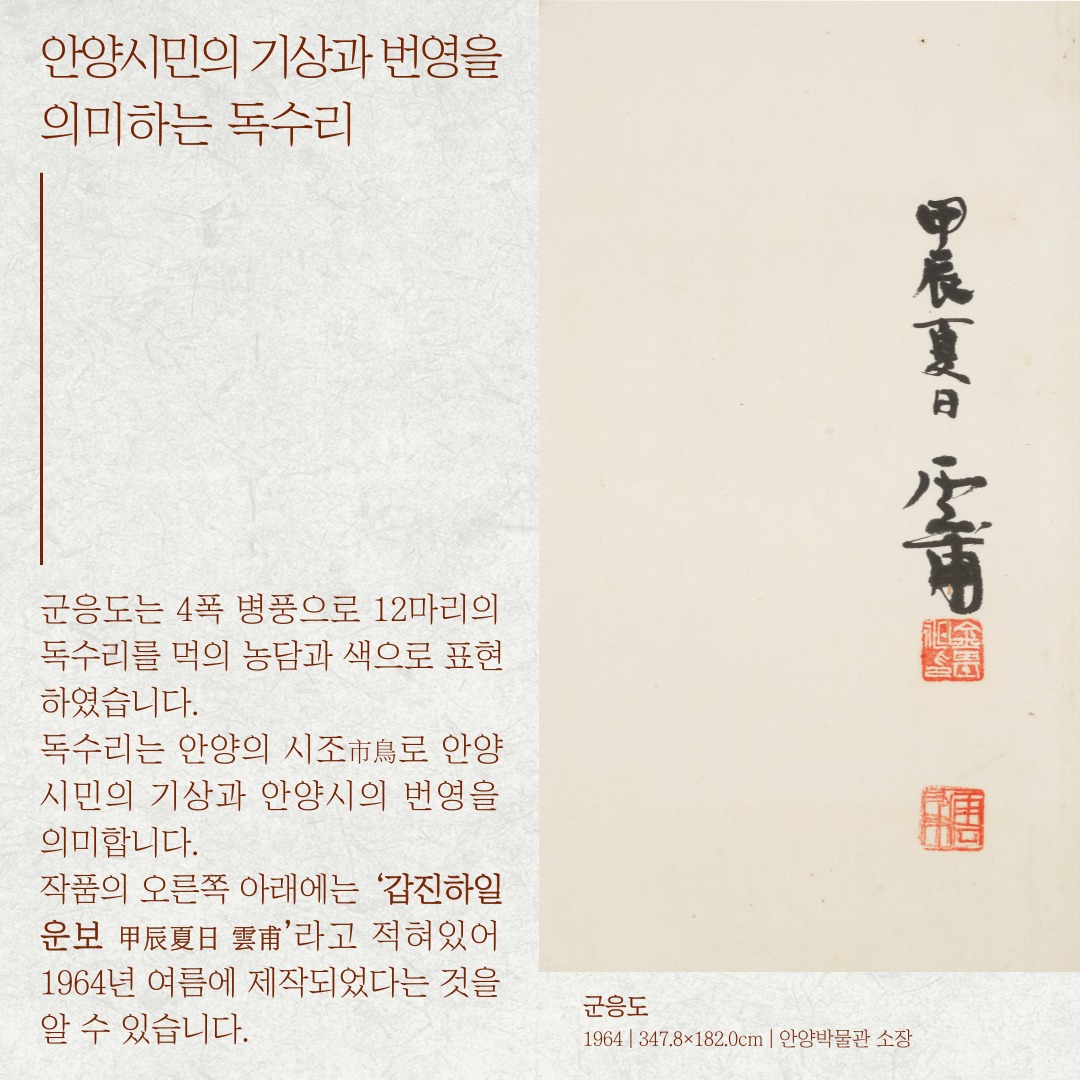 안양시민의 기상과 번영을
의미하는 독수리
군응도는 4폭 병풍으로 12마리의
독수리를 먹의 농담과 색으로 표현
하였습니다.
독수리는 안양의 시조市鳥로 안양
시민의 기상과 안양시의 번영을
의미합니다.
작품의 오른쪽 아래에는 ‘갑진하일
운보 甲辰夏日 雲甫’라고 적혀있어
1964년 여름에 제작되었다는 것을
알 수 있습니다.
甲辰夏日
雲甫
군응도
1964 | 347.8×182.0cm | 안양박물관 소장